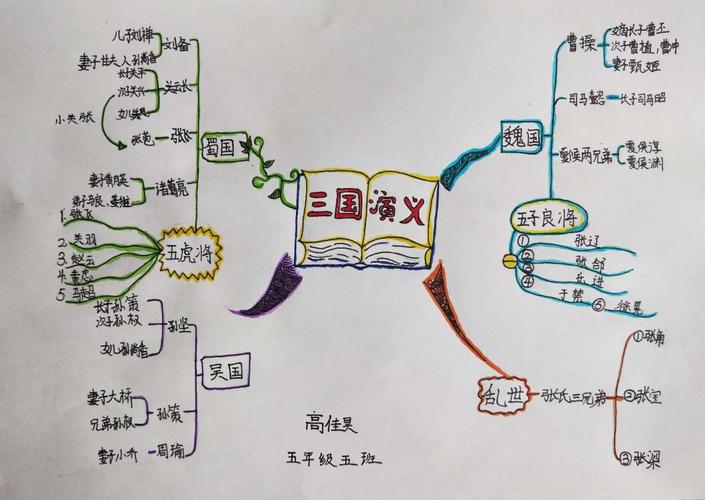 三国演义
蜀国
刘备
儿子刘禅
妻子甘夫人 孙尚香
关云长
长子关平
次子关兴
小关张
张飞
张苞
诸葛亮
妻子黄月英
弟子马良、姜维
五虎将
1. 张飞
2. 关羽
3. 赵云
4. 黄忠
5. 马超
吴国
孙坚
长子孙策
次子孙权
女儿孙尚香
孙策
妻子大桥
兄弟孙权
周瑜
妻子小乔
魏国
曹操
嫡长子曹丕
次子曹植,曹冲
妻子甄姬
长子司马昭
夏侯两兄弟
夏侯淳
夏侯渊
五子良将
① 张辽
② 张郃
③ 乐进
④ 于禁
⑤ 徐晃
乱世
张氏三兄弟
①张角
②张宝
③张梁
高佳昊
五年级五班